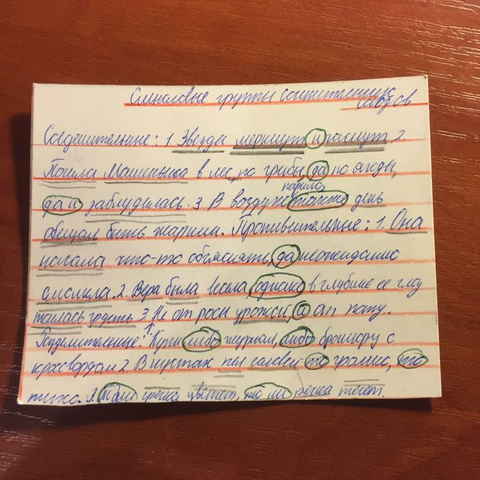 Смысловые группы сочинительных
союзов
Соединительные: 1. Звезда меркнут и гаснут. 2
Пошла Машенька в лес, по грибы да по ягоды,
да и заблудилась. 3. В воздухе парило также день
обещал быть жарким. Противительные: 1. Она
начала что-то объяснять, да неожиданно
смолкла. 2. Вера была весела однако в глубине её глаз
таилась грусть. 3. Не от росы урожай, а от поту.
Разделительные: 1. Купи либо журнал, либо брошюру с
кроссвордам 2. В кустах пел соловей то громко, то
тихо. 3. то ли гречка цветёт, то ли речка течёт.